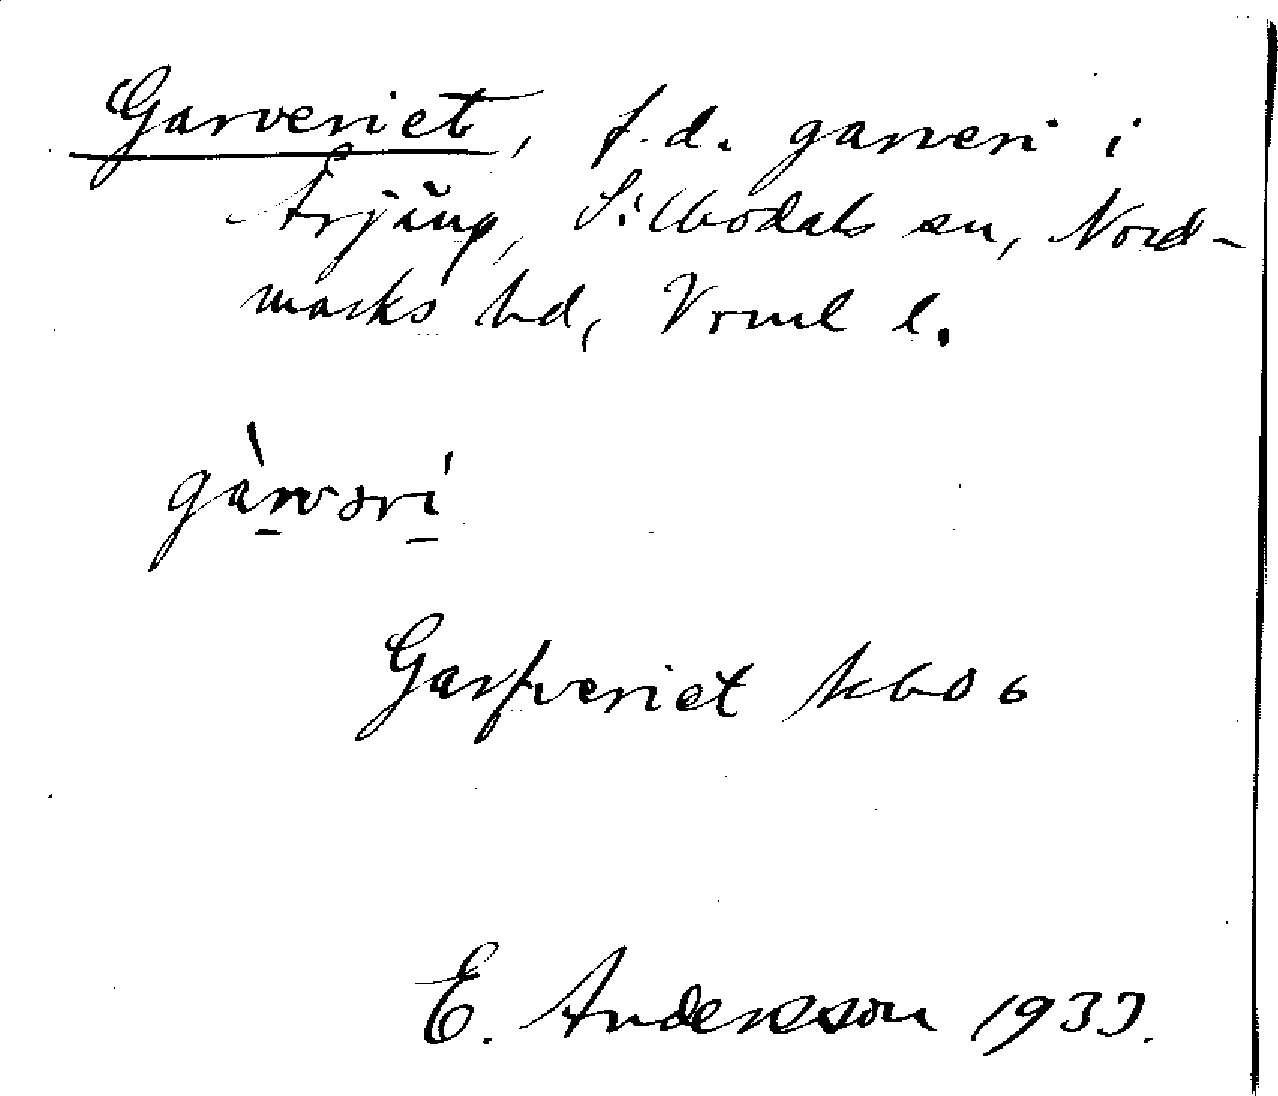 Garveriet, f.d. garveri i
Årjäng, Silbodals sn, Nord-
marks hd, Vrml l.
gàrvərí
Garfveriet kb 06
E. Andersson 1933.